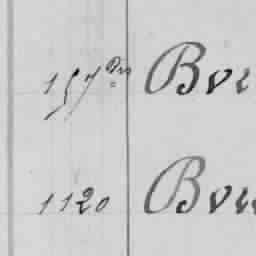 157 Bis Bou
1120 Bou